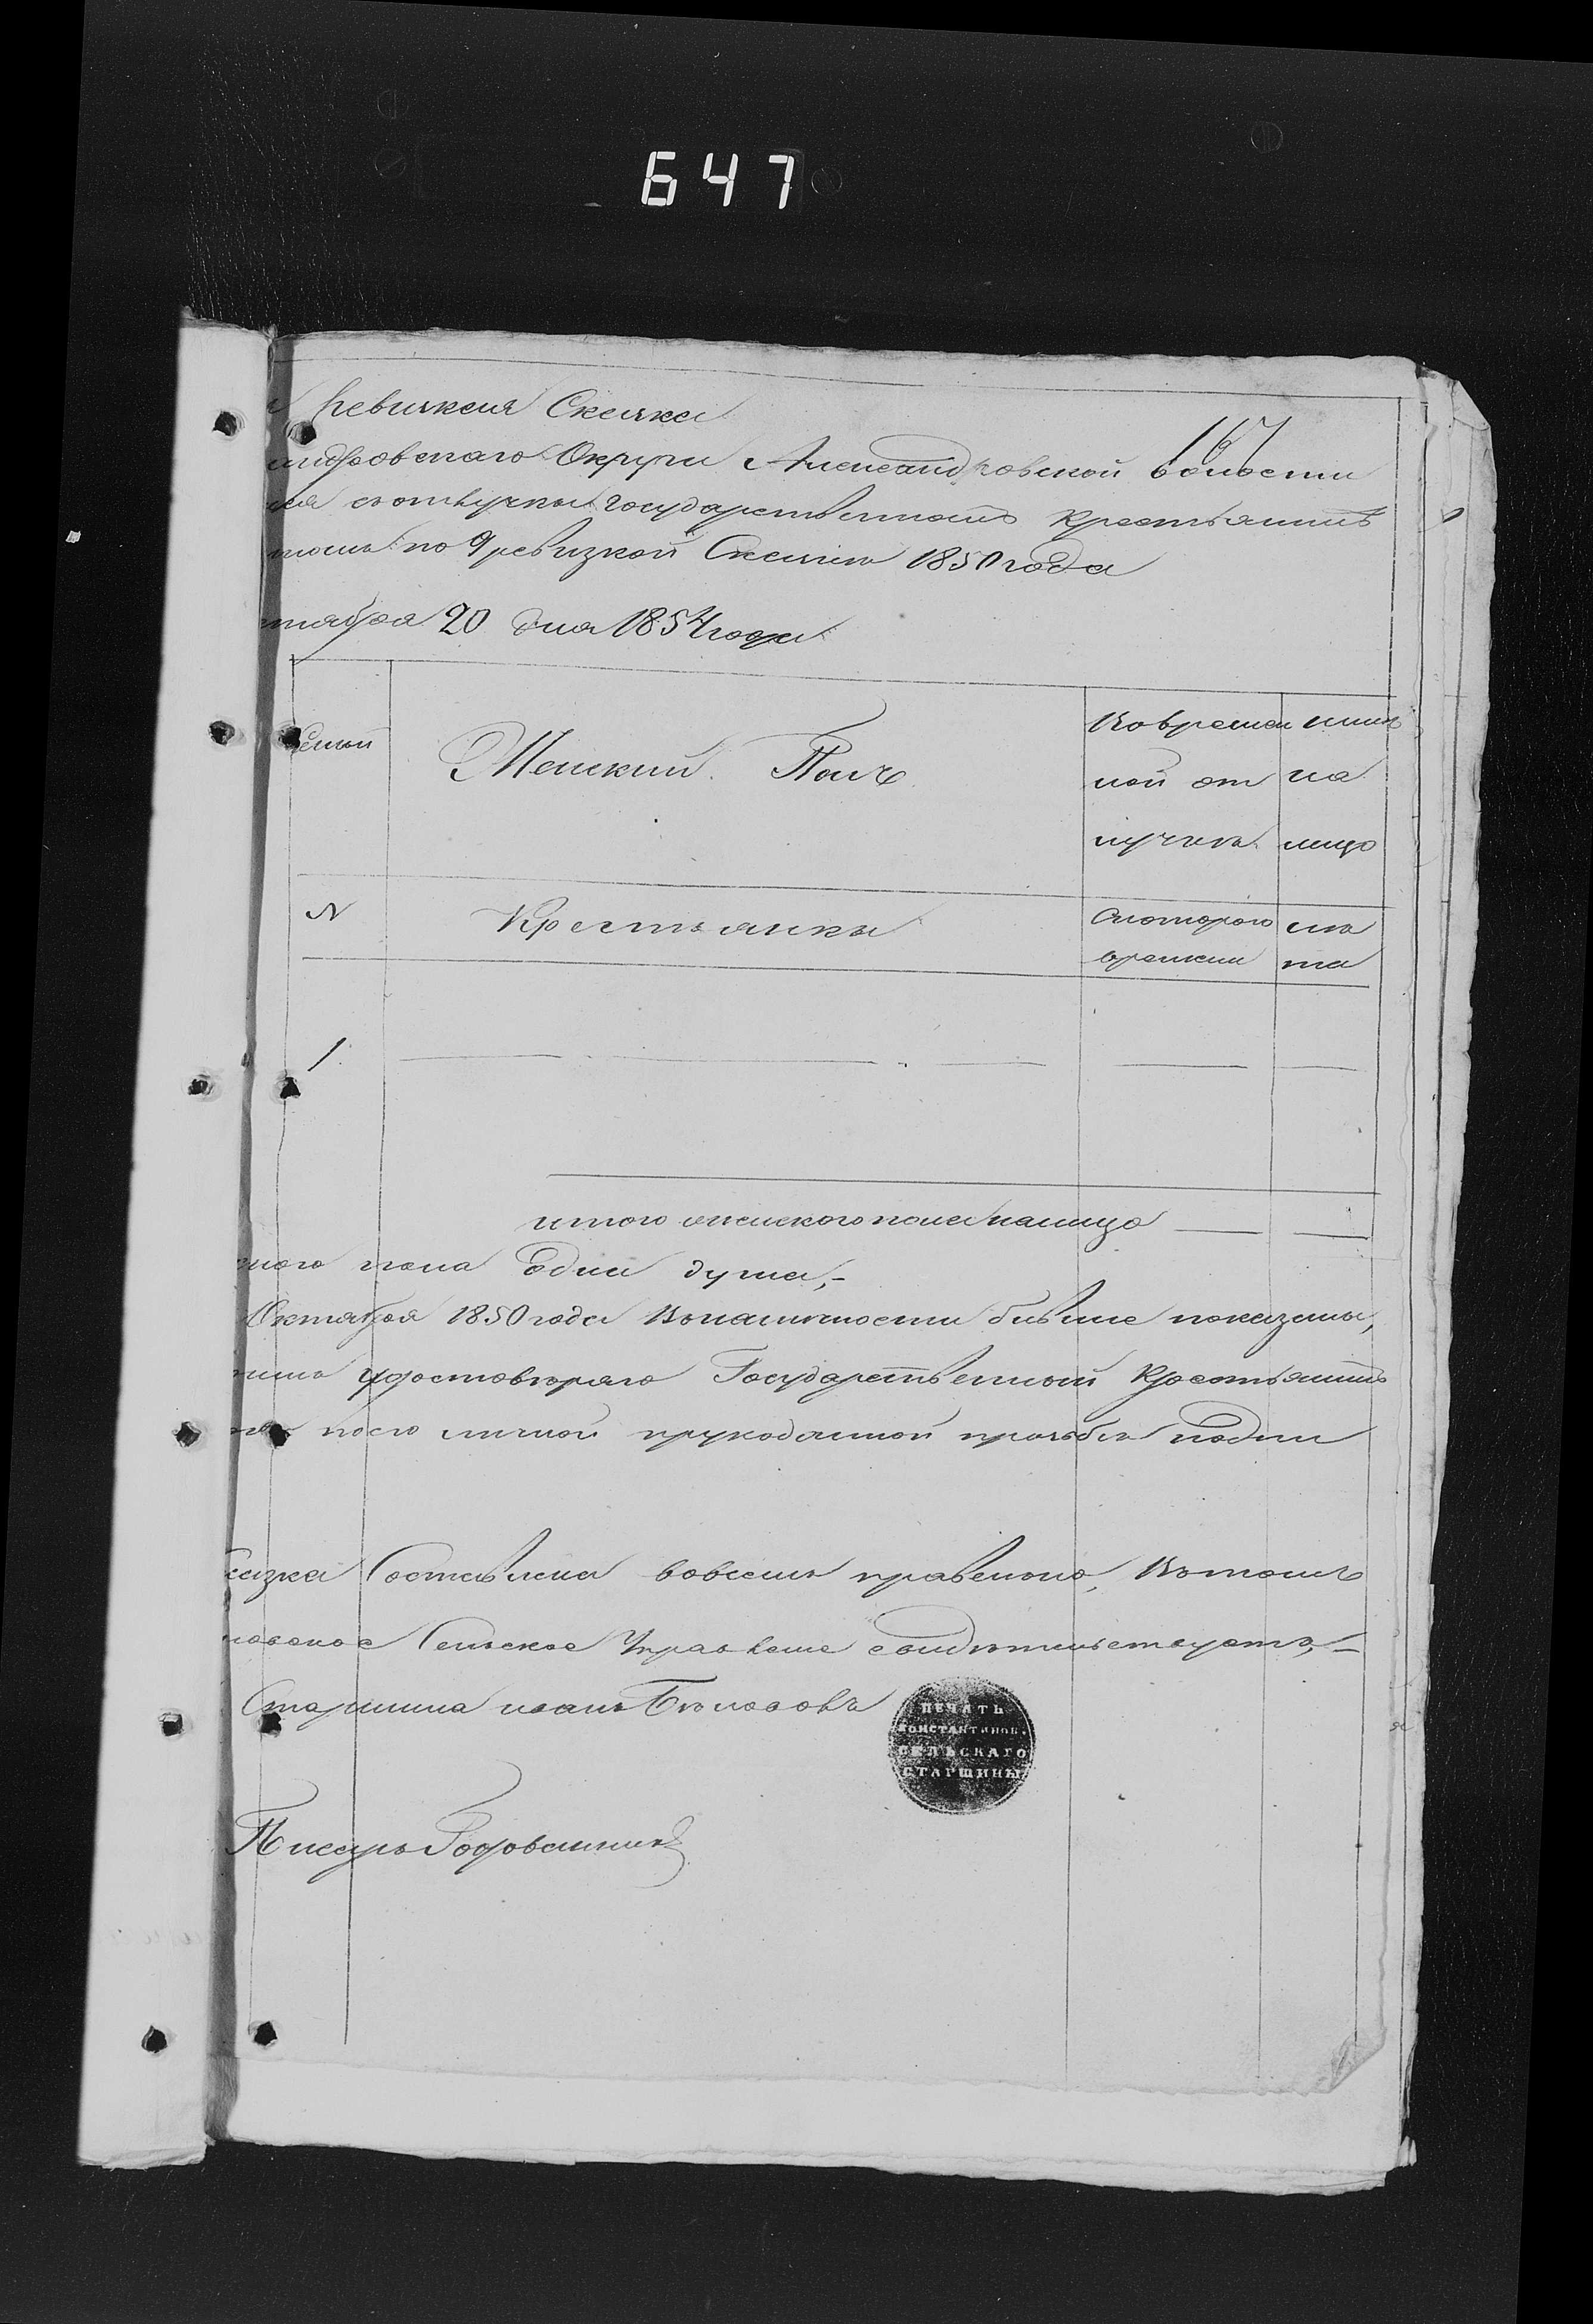 647
Ревизкая Сказка
167
андровскаго Округа Александровской волости
государственной крестьянинъ
по 9 ревизкой Сказки 1850 года
тября 20 дня 1854 года
Семьи
Женский Полъ
Вовремен
ной от
лучки
ныне
на
лицо
N
Крестьянки
Скоторого
времени
ле
та
1
итого женского пола налицо
ного пола Една душа,
Октября 1850 года Вналичности бывше показаны,
удостоверяю Государственный Крестьянинъ
по личной прозьбе подпи
казка Составлена вовсемъ правельно, Втомъ
Сельское Управление свидетельствуетъ,
Старшина иванъ
ПЕЧАТЬ
КОНСТАНТИНОВ.
СЕЛЬСКАГО
СТАРШИНЫ
Писарь